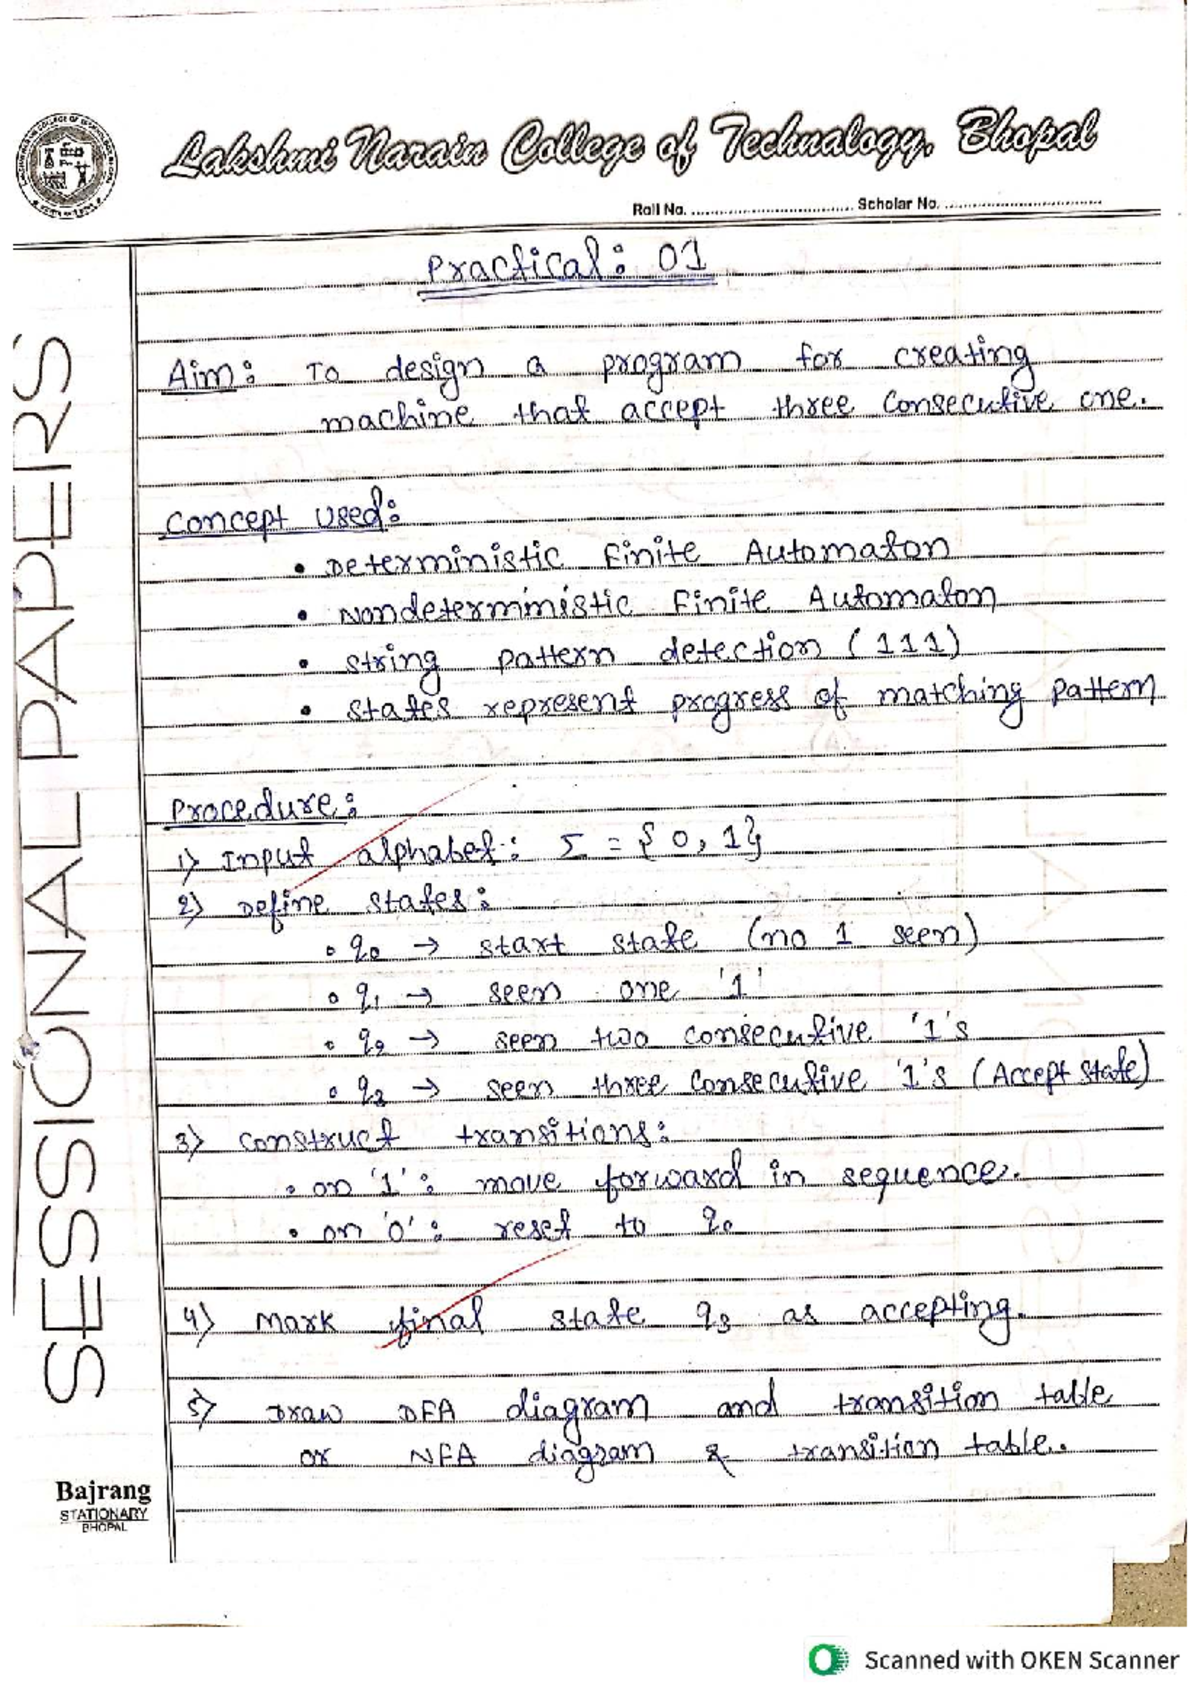 Lakshmi Narain College of Technalogy, Bhopal
Roll No. .................................. Scholar No. ..................................
Practical: 01
Aim: To design a program for creating
machine that accept three consecutive one.
Concept Used:
• Deterministic Finite Automaton
• Nondeterministic Finite Automaton
• String pattern detection (111)
• States represent progress of matching pattern
Procedure:
1) Input alphabet: Σ = {0, 1}
2) Define states:
• q0 → start state (no 1 seen)
• q1 → seen one '1'
• q2 → seen two consecutive '1's
• q3 → seen three consecutive '1's (Accept state)
3) Construct transitions:
• on '1': move forward in sequence.
• on '0': reset to q0
4) Mark final state q3 as accepting.
5) Draw DFA diagram and transition table
or NFA diagram & transition table.
SESSIONAL PAPERS
Bajrang
STATIONARY
BHOPAL
Scanned with OKEN Scanner